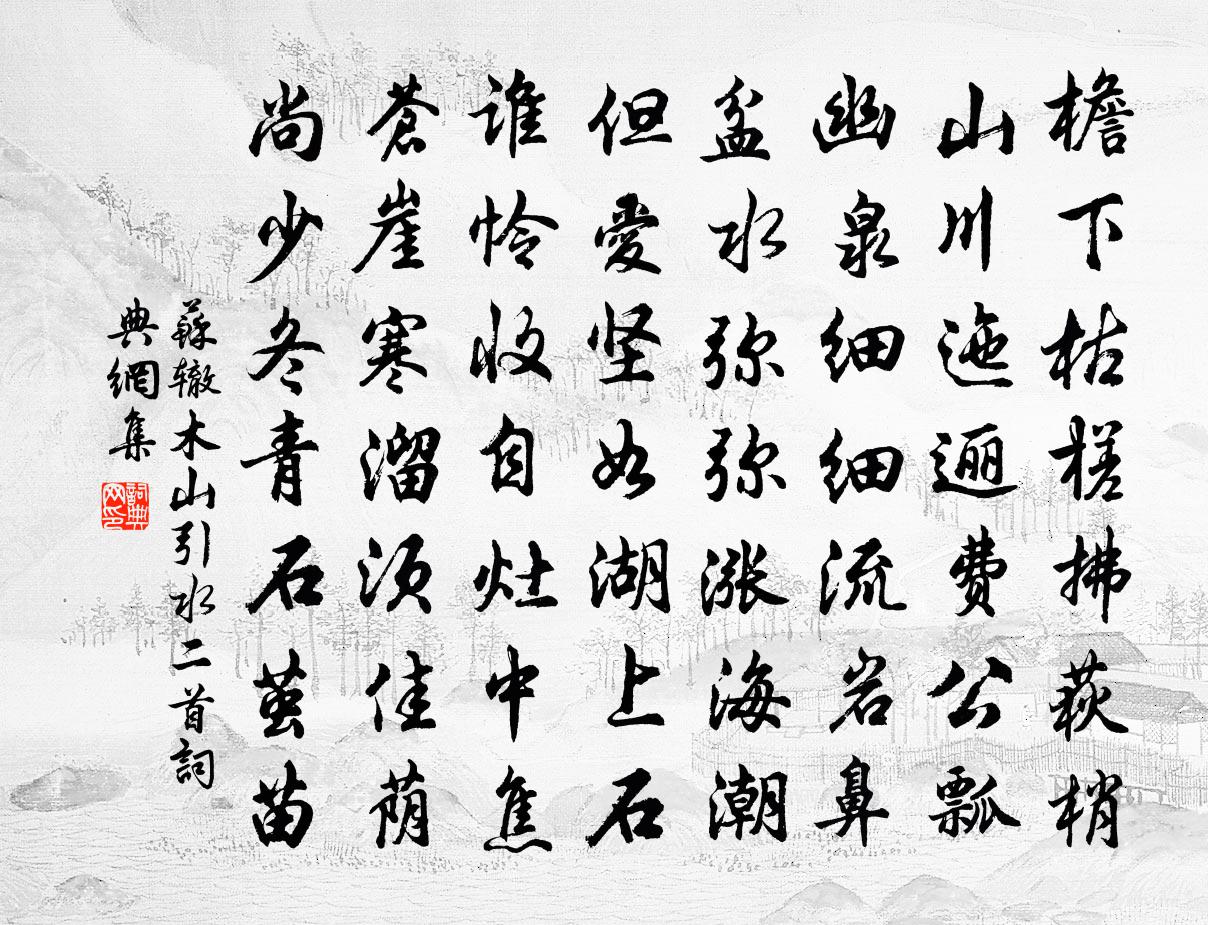 檐下枯槎拂荻梢
山川迤逦费公瓢
幽泉细细流岩鼻
盆水弥弥涨海潮
但爱坚如湖上石
谁怜收自灶中焦
苍崖寒溜须佳荫
尚少冬青石茧苗
蘇辙木山引水二首詞
典網集
詞典网印